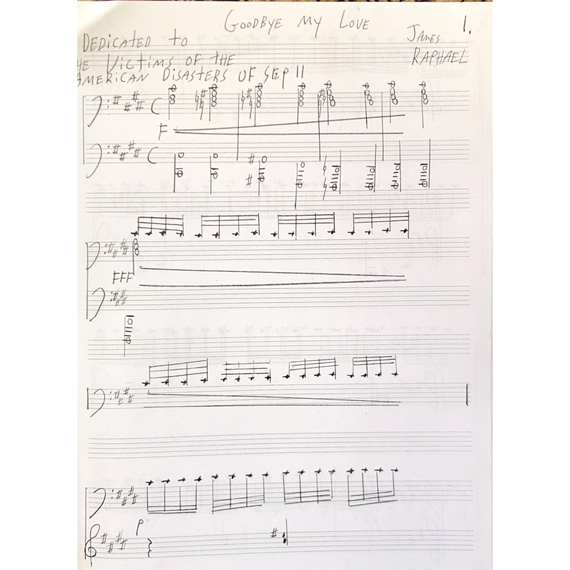 GOODBYE MY LOVE
1.
JAMES
RAPHAEL
DEDICATED TO
HE VICTIMS OF THE
AMERICAN DISASTERS OF SEP 11
F
FFF
P